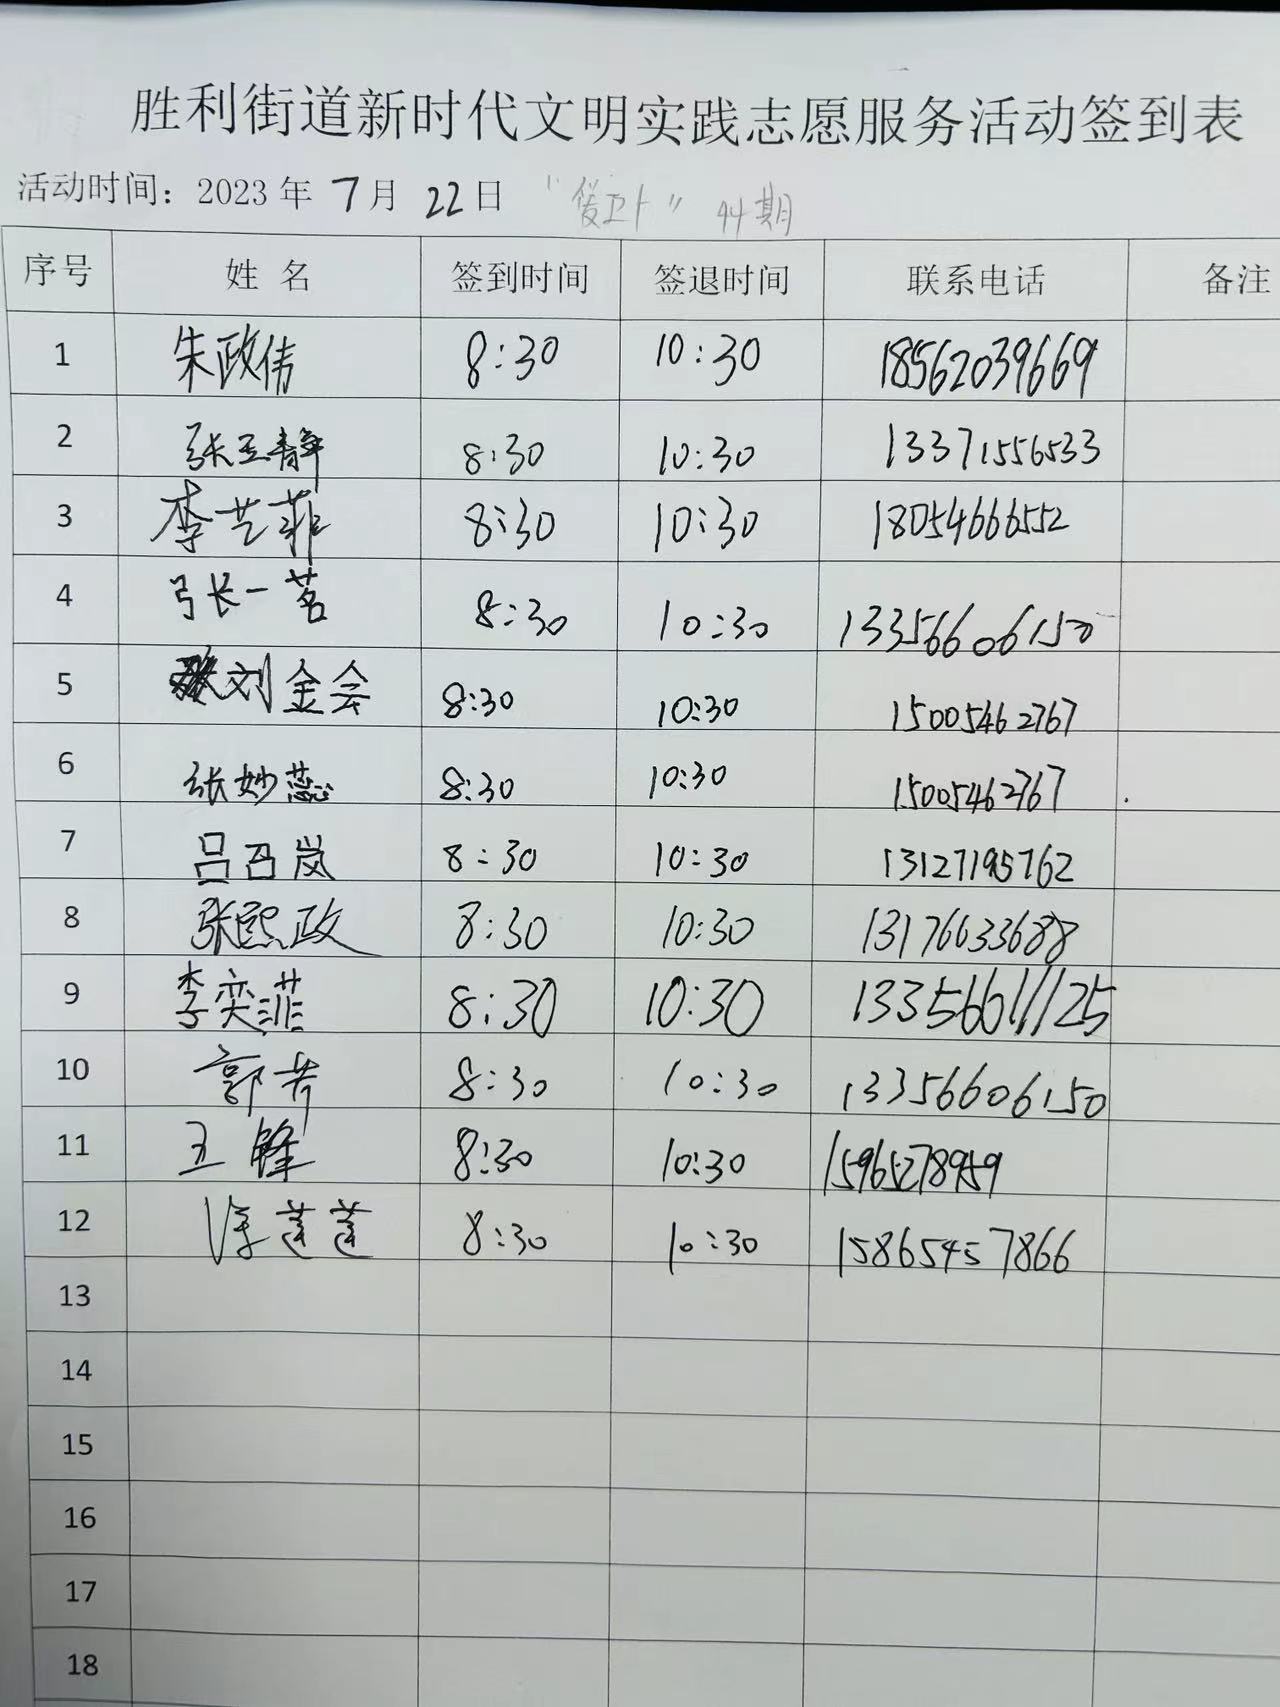 胜利街道新时代文明实践志愿服务活动签到表
活动时间：2023年 7月 22日 44期
序号 姓名 签到时间 签退时间 联系电话 备注
1 朱政伟 8:30 10:30 18562039669
2 张玉静 8:30 10:30 13371556533
3 李艺菲 8:30 10:30 18054666552
4 张一茗 8:30 10:30 13356606150
5 刘金会 8:30 10:30 15005462767
6 张妙蕊 8:30 10:30 15005462767
7 吕召岚 8:30 10:30 13127195762
8 张熙政 8:30 10:30 13176633688
9 李奕菲 8:30 10:30 13356611125
10 郭芳 8:30 10:30 13356606150
11 王锋 8:30 10:30 15965278959
12 徐莲莲 8:30 10:30 15865457866
13
14
15
16
17
18